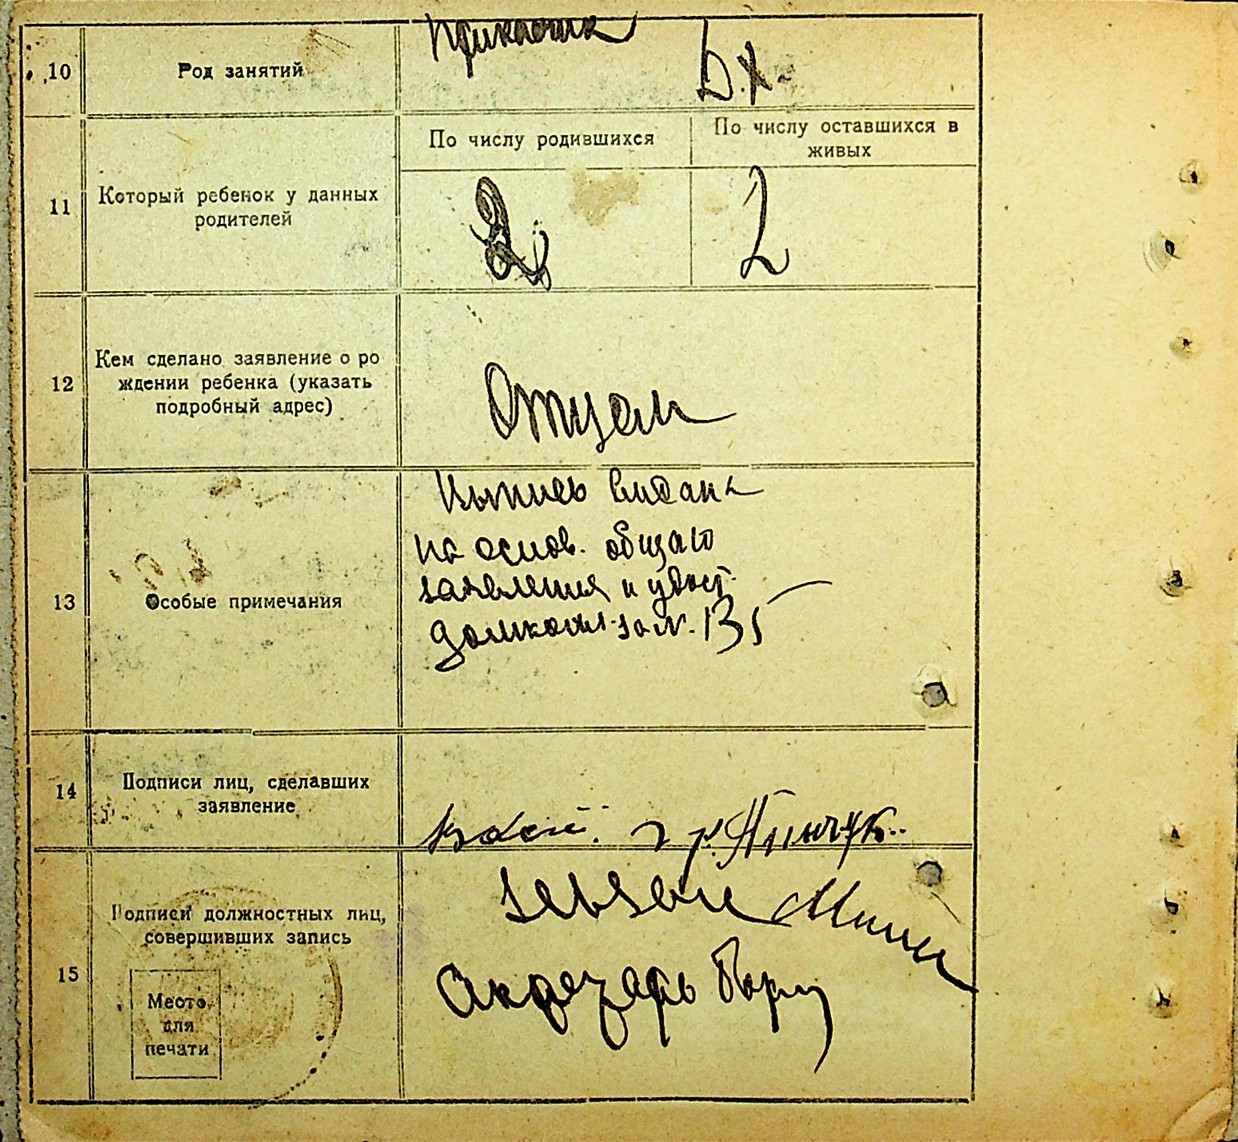 10
Род занятий
Б.Х.
11
Который ребенок у данных
родителей
По числу родившихся
2
По числу оставшихся в
живых
2
12
Кем сделано заявление о ро
ждении ребенка (указать
подробный адрес)
Отцем
13
Особые примечания
на основ. общаго
заявления и удост.
домком за N. 135
14
Подписи лиц, сделавших
заявление
15
Подписи должностных лиц,
совершивших запись
Место
для
печати